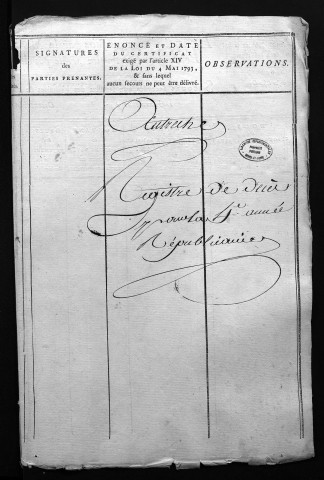 SIGNATURES
des
PARTIES PRENANTES.
ENONCÉ ET DATE
DU CERTIFICAT
exigé par l'article XIV
DE LA LOI DU 4 MAI 1793,
& sans lequel
aucun secours ne peut être délivré.
OBSERVATIONS.
Autreche
Registre de décès
pour la 4e année
Républicaine